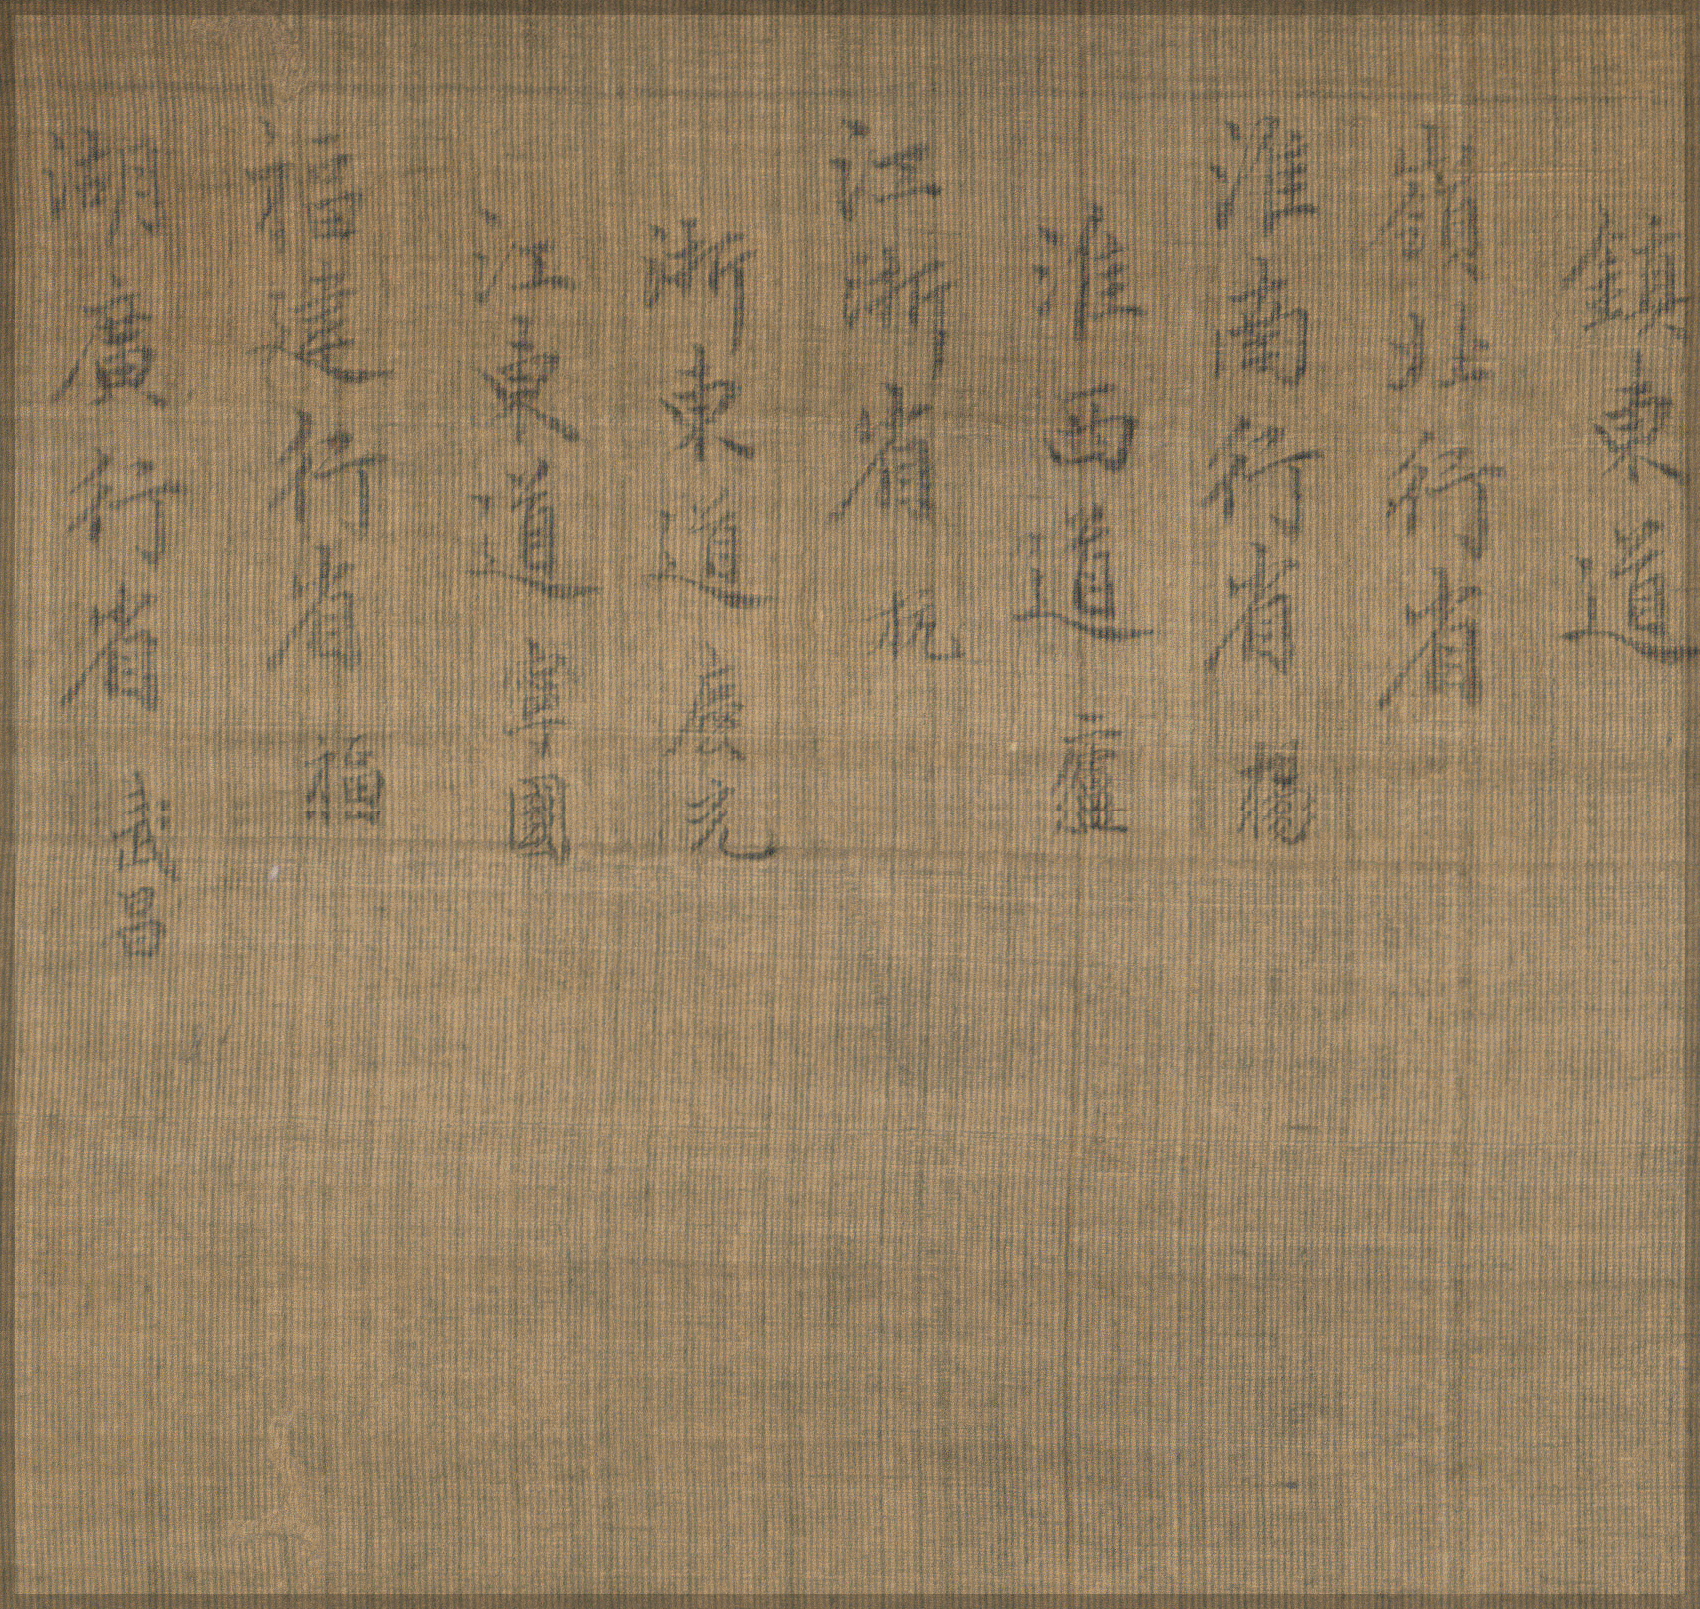 鎮東道
嶺北行省
淮南行省 揚
淮西道 廬
江浙省 杭
浙東道 慶元
江東道 寧國
福建行省 福
湖廣行省 武昌